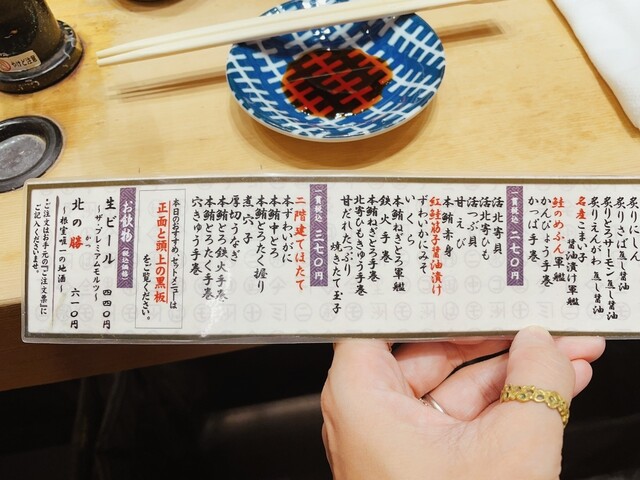 炙りさば 直し醤油
炙りとろサーモン 直し醤油
炙りえんがわ 直し醤油
名産こまい子
醤油漬け軍艦
鮭のめふん軍艦
かんぴょう手巻
かっぱ手巻
一貫税込 二七〇円
活北寄貝
活北寄ひも
活つぶ貝
甘えび
本鮪赤身
紅鮭筋子醤油漬け
ずわいかにみそ
いくら
本鮪ねぎとろ軍艦
鉄火手巻
本鮪ねぎとろ手巻
北寄ひもきゅう手巻
甘だれたっぷり
焼きたて玉子
一貫税込 三七〇円
二階建てほたて
本ずわいがに
本鮪中とろ
煮穴子
厚切うなぎ
本鮪とろたく握り
本鮪とろ鉄火手巻
本鮪とろたく手巻
穴きゅう手巻
本日のおすすめ、セットメニューは
正面と頭上の黒板
をご覧ください。
お飲物(税込価格)
生ビール 四四〇円
〜ザ・プレミアムモルツ〜
北の勝 六一〇円
かつ
〜根室唯一の地酒〜
・ご注文はお手元の『ご注文票』に
ご記入くださいませ。